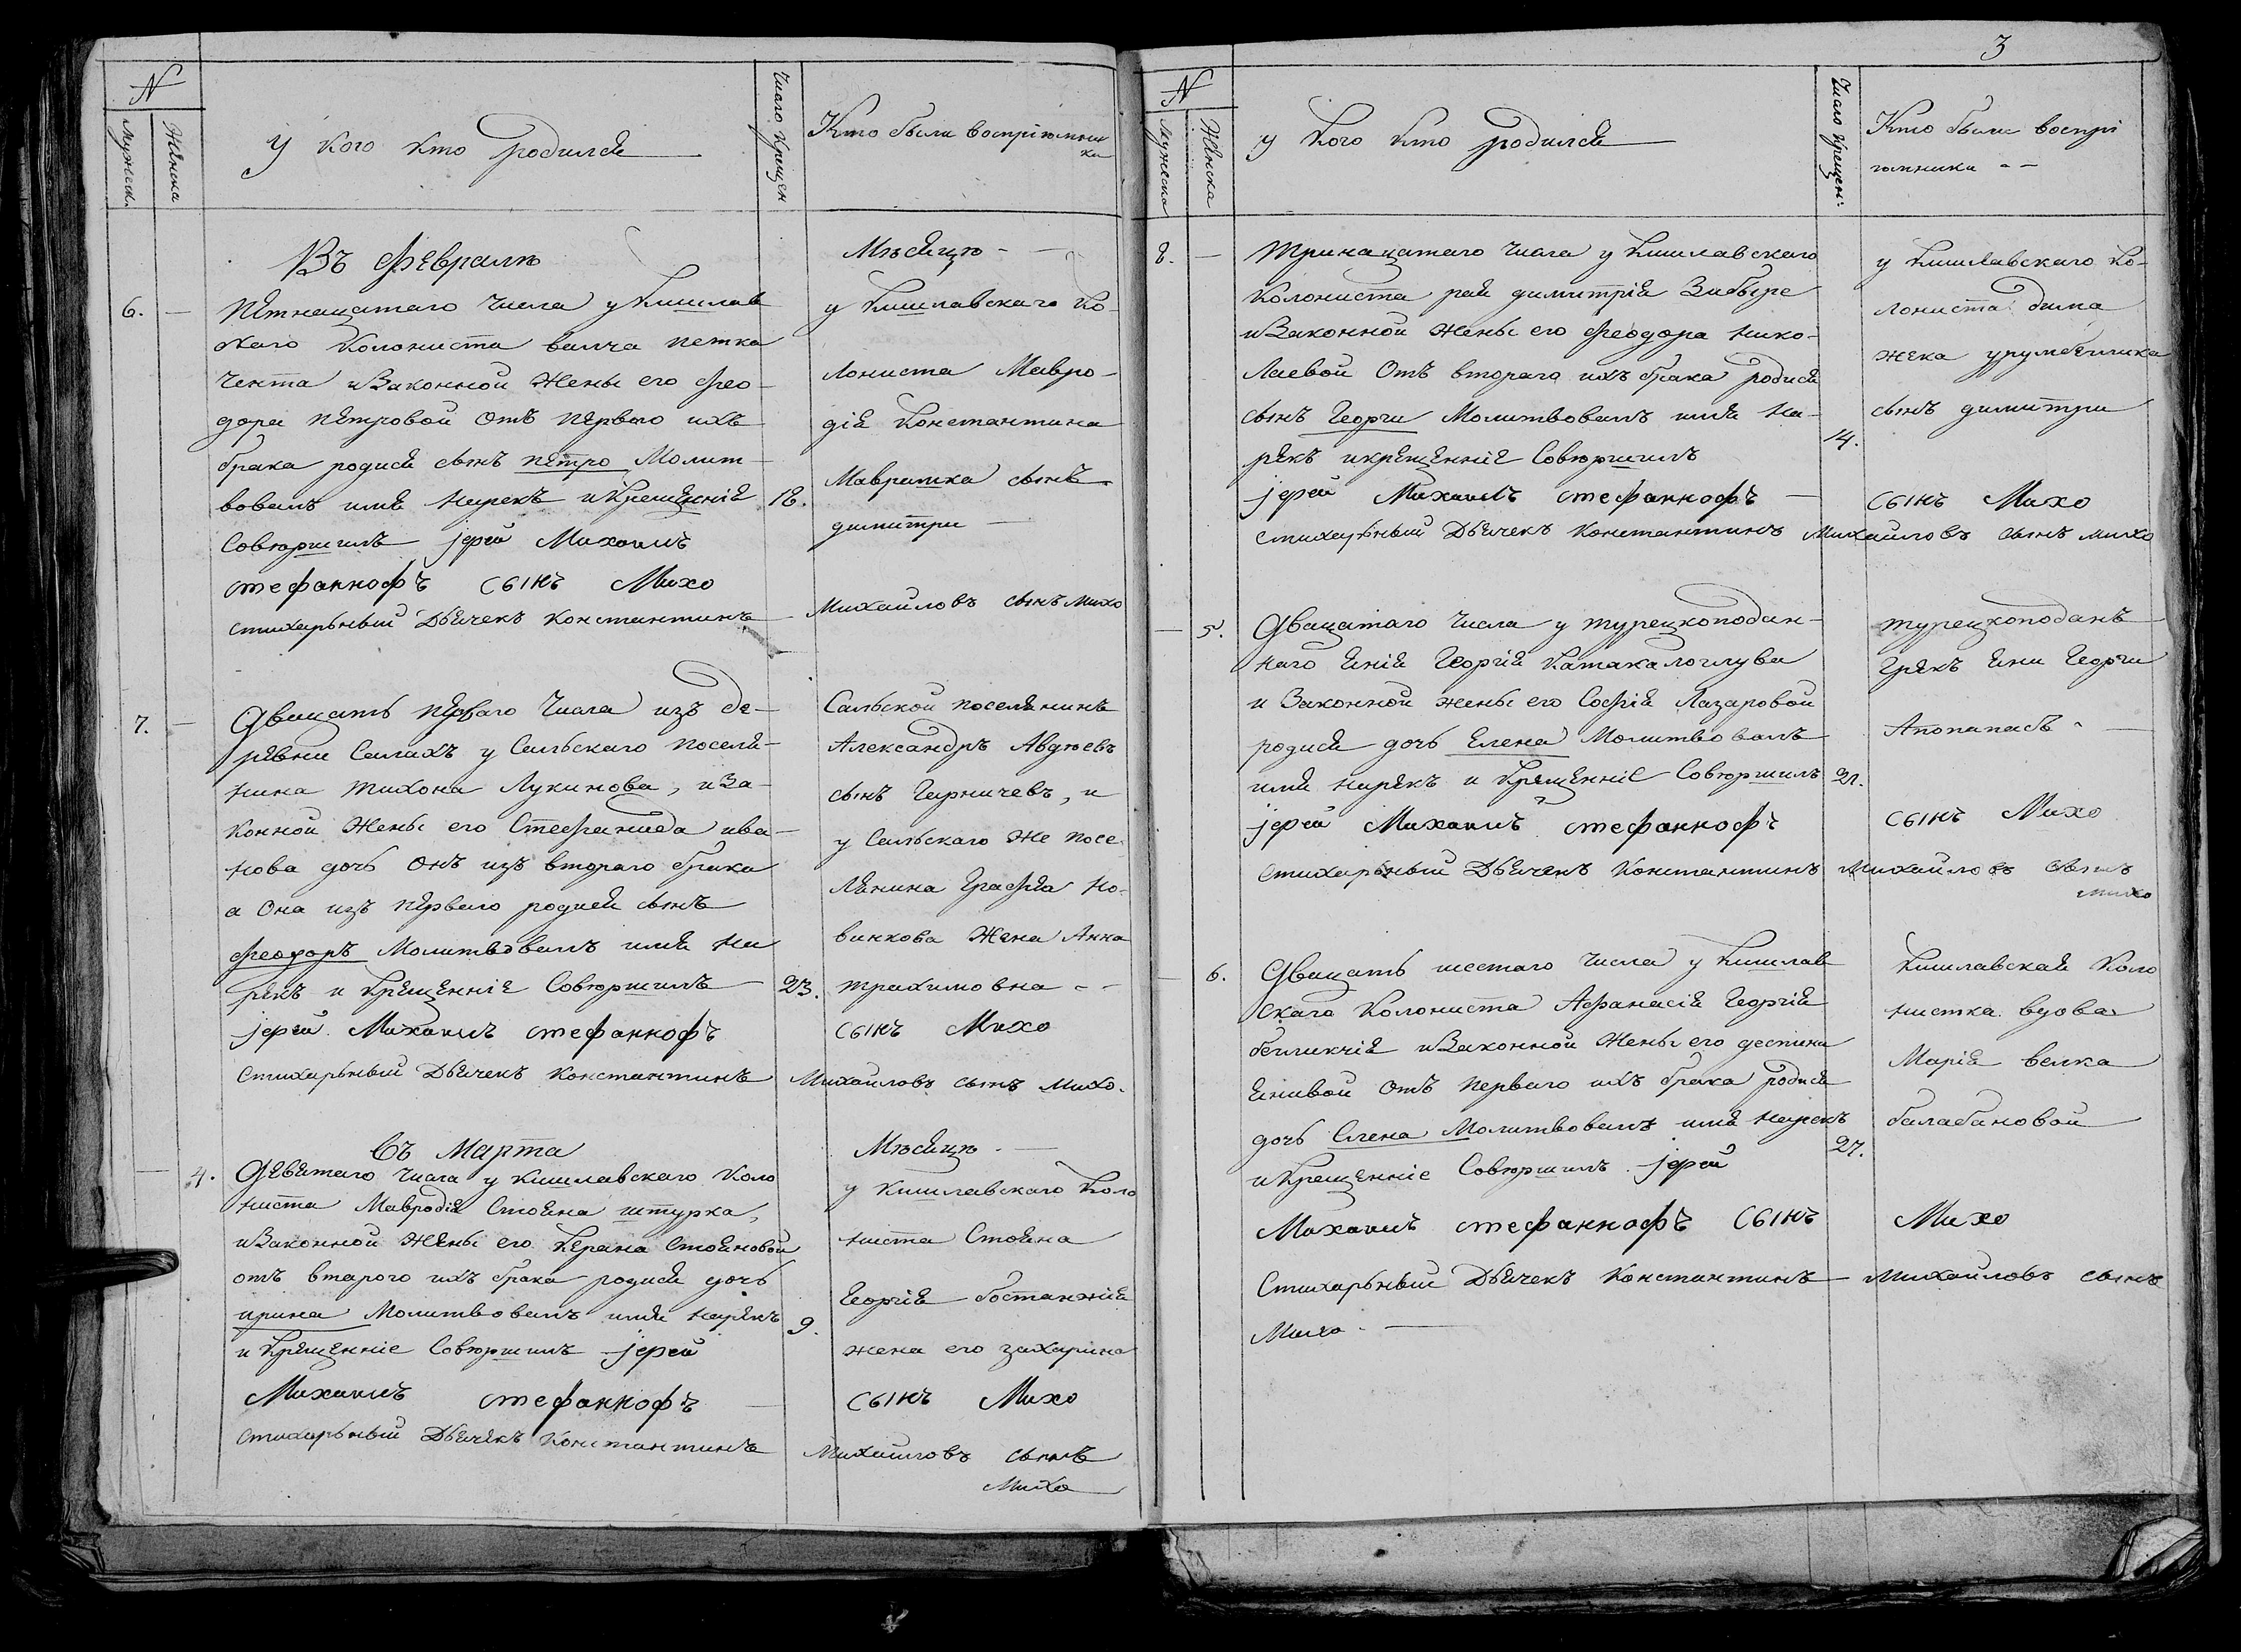 N
Мужеск.
Женска
У кого кто родился
Число Крещен
Кто были восприемни
ки
Въ Февралѣ
Мѣсяцѣ
6.
Пятнацатаго Числа у Кишлав
скаго Колониста велча петка
Чента и Законной Жены его Фео-
дора петровой Отъ перваго ихъ
брака родися сынъ петро Молит-
вовалъ имя нарекъ и Крещенніе
Совюршилъ јерей Михаилъ
стефанкофъ сынъ Михо
стихарьный Дьячекъ Константинъ
18.
у Кишлавскаго Ко-
лониста Мавро-
дія Константина
Мавратка сынъ
димитри
Михайловъ сынъ михо
7.
Двацать перваго Числа изъ де-
ревни Салахъ у Сальскаго поселя-
нина Тихона Лукинова, и За-
конной Жены его Стефанида ива-
нова дочь Онъ изъ втораго брака
а Она изъ перваго родися сынъ
Феодоръ Молитвовалъ имя на
рекъ и Крещенніе Совюршилъ
јерей Михаилъ стефанкофъ
Стихарьный Дьячекъ Константинъ
23.
Сальской поселянинъ
Александръ Авдѣевъ
сынъ Гарничевъ, и
у Сальскаго же посе-
лянина Ерафея Но-
викова Жена Анна
трахимовна
сынъ Михо
Михайловъ сынъ Михо.
Съ Марта
Мѣсяцѣ
4.
Девятаго Числа у Кишлавскаго Коло
ниста Мавродія Стояна штурка,
и Законной Жены его Керана Стояновой
отъ втарого ихъ брака родися дочь
ирина Молитвовалъ имя нарекъ
и Крещенніе Совюршилъ јерей
Михаилъ стефанкофъ
стихарьный Дьячекъ Константинъ
9.
у Кишлавскаго Коло
ниста Стояна
Георгія бостанжія
жена его захарина
сынъ Михо
Михайловъ сынъ
Михо
3
N
Мужеска
Женска
у Кого Кто родился
Число Крещен:
Кто были воспрі
емники
8.
Тринацатаго Числа у Кишлавскаго
Колониста рая димитрія Забыре
и Законной Жены его Феодора Нико-
лаевой Отъ втораго ихъ брака родися
сынъ Георги Молитвовалъ имя на-
рекъ и крещенніе Совюршилъ
јерей Михаилъ стефанкофъ
стихарьный Дьячекъ Константинъ
14.
у Кишлавскаго Ко-
лониста дима
жека урумовилика
сынъ димитри
сынъ Михо
Михайловъ сынъ михо
5.
Двацатаго Числа у турецкоподан-
наго яній Георгія Катакалоглува
и Законной жены его Софія Лазаровой
родися дочь Елена Молитвовалъ
имя нарекъ и Крещенніе Совюршилъ
јерей Михаилъ стефанкофъ
стихарьный Дьячекъ Константинъ
21.
турецкоподанъ
Грекъ яни Георги
Апопапасъ
сынъ Михо
Михайловъ сынъ
михо
6.
Двацать шестаго Числа у Кишлав
скаго Колониста Афанасія Георгія
бепликчія и Законной Жены его деспина
янивой Отъ перваго ихъ брака родися
дочь Елена Молитвовалъ имя нарекъ
и Крещенніе Совюршилъ јерей
Михаилъ стефанкофъ сынъ
Стихарьный Дьячекъ Константинъ
Михо
27.
Кишлавская Коло
нистка вдова
Марія велка
балабановой
Михо
Михайловъ сынъ